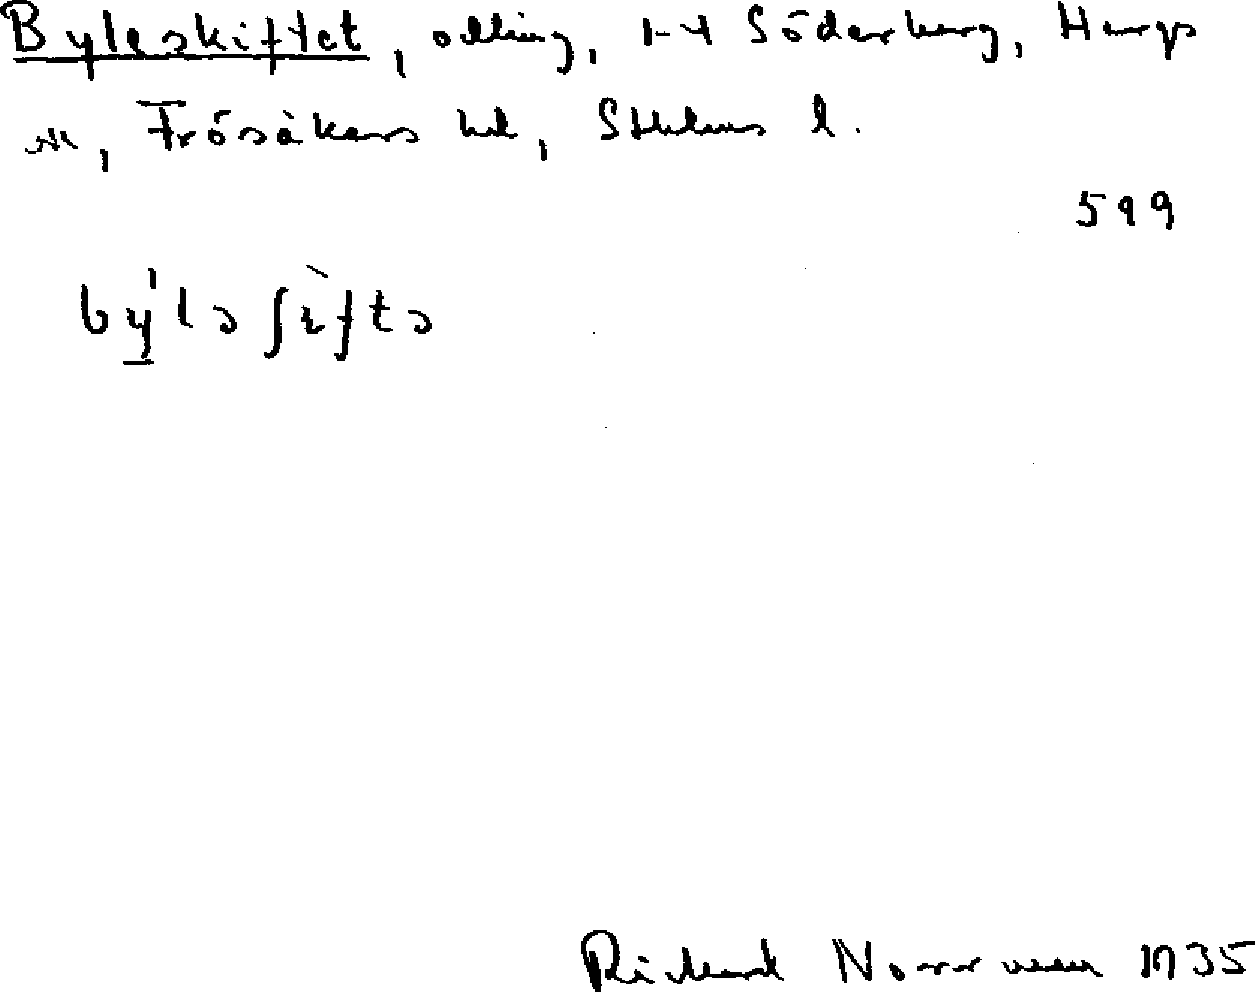 Byleskiftet, odling, 1-4 Söderberg, Hargs
sn, Frösåkers hd, Sthlms l.
599
by̠'lə ʃìftə
Richard Norrman 1935